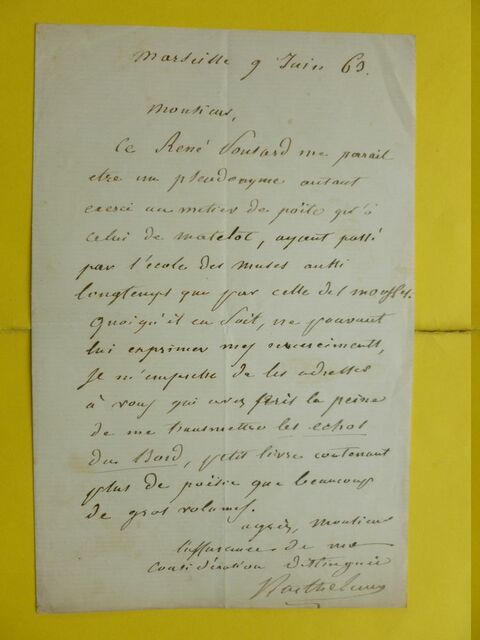 Marseille 9 Juin 63.
Monsieur,
Ce René Pontard me parait
etre un pseudonyme autant
exercé au métier de poëte qu'à
celui de matelot, ayant passé
par l'école des muses aussi
longtemps que par celle des mousses.
Quoiqu'il en soit, ne pouvant
lui exprimer mes remerciments,
je m'empresse de les adresser
à vous qui avez pris la peine
de me transmettre les echos
du Bord, petit livre contenant
plus de poësie que beaucoup
de gros volumes.
agréez, Monsieur
l'assurance de ma
considération distinguée
Barthelemy